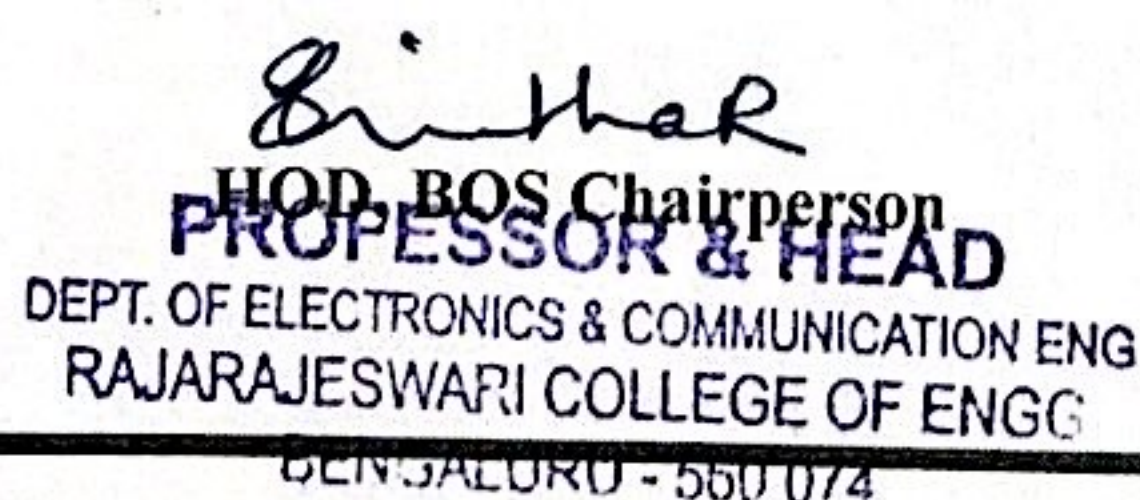 HOD, BOS Chairperson
PROFESSOR & HEAD
DEPT. OF ELECTRONICS & COMMUNICATION ENG
RAJARAJESWARI COLLEGE OF ENGG
BENGALURU - 560 074